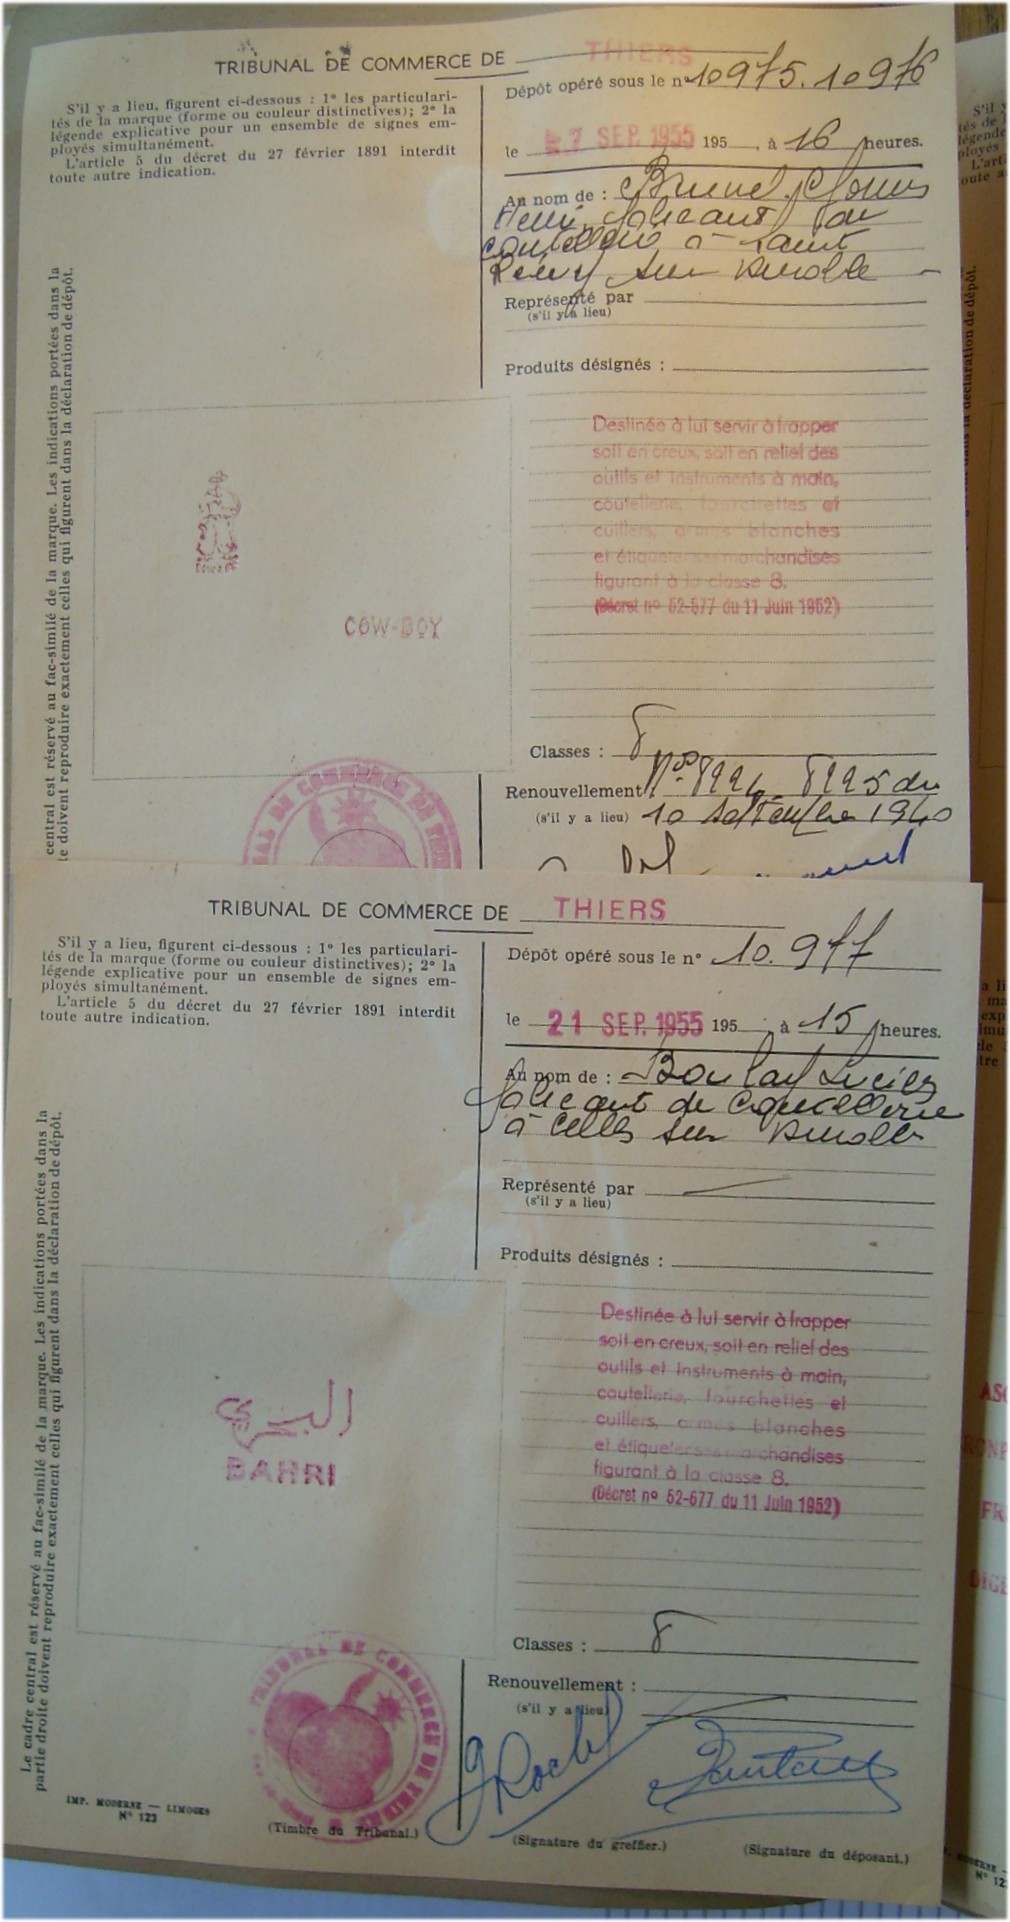 TRIBUNAL DE COMMERCE DE THIERS
S'il y a lieu, figurent ci-dessous : 1° les particulari-
tés de la marque (forme ou couleur distinctives); 2° la
légende explicative pour un ensemble de signes em-
ployés simultanément.
L'article 5 du décret du 27 février 1891 interdit
toute autre indication.
Dépôt opéré sous le n° 10975.10976
le 7 SEP. 1955 195 , à 16 heures.
Au nom de : Brunel
Henri, fabricant de
coutellerie à Saint
Rémy sur Durolle
Représenté par
(s'il y a lieu)
Produits désignés :
Destinée à lui servir à frapper
soit en creux, soit en relief des
outils et instruments à main,
coutellerie, fourchettes et
cuillers, armes blanches
et étiqueter ses marchandises
figurant à la classe 8.
(Décret n° 52-677 du 11 Juin 1952)
COW-BOY
Classes : 8
Renouvellement Nos 8224 8225 du
(s'il y a lieu) 10 septembre 1940
central est réservé au fac-similé de la marque. Les indications portées dans la
te doivent reproduire exactement celles qui figurent dans la déclaration de dépôt.
TRIBUNAL DE COMMERCE DE THIERS
S'il y a lieu, figurent ci-dessous : 1° les particulari-
tés de la marque (forme ou couleur distinctives); 2° la
légende explicative pour un ensemble de signes em-
ployés simultanément.
L'article 5 du décret du 27 février 1891 interdit
toute autre indication.
Dépôt opéré sous le n° 10.977
le 21 SEP. 1955 195 , à 15 heures.
Au nom de : Boulay Lucien
fabricant de coutellerie
à Celles sur Durolle
Représenté par
(s'il y a lieu)
Produits désignés :
Destinée à lui servir à frapper
soit en creux, soit en relief des
outils et instruments à main,
coutellerie, fourchettes et
cuillers, armes blanches
et étiqueter ses marchandises
figurant à la classe 8.
(Décret n° 52-677 du 11 Juin 1952)
البحري
BAHRI
Classes : 8
Renouvellement :
(s'il y a lieu)
Le cadre central est réservé au fac-similé de la marque. Les indications portées dans la
partie droite doivent reproduire exactement celles qui figurent dans la déclaration de dépôt.
TRIBUNAL DE COMMERCE DE THIERS
IMP. MODERNE — LIMOGES
N° 123
(Timbre du Tribunal.)
(Signature du greffier.)
(Signature du déposant.)